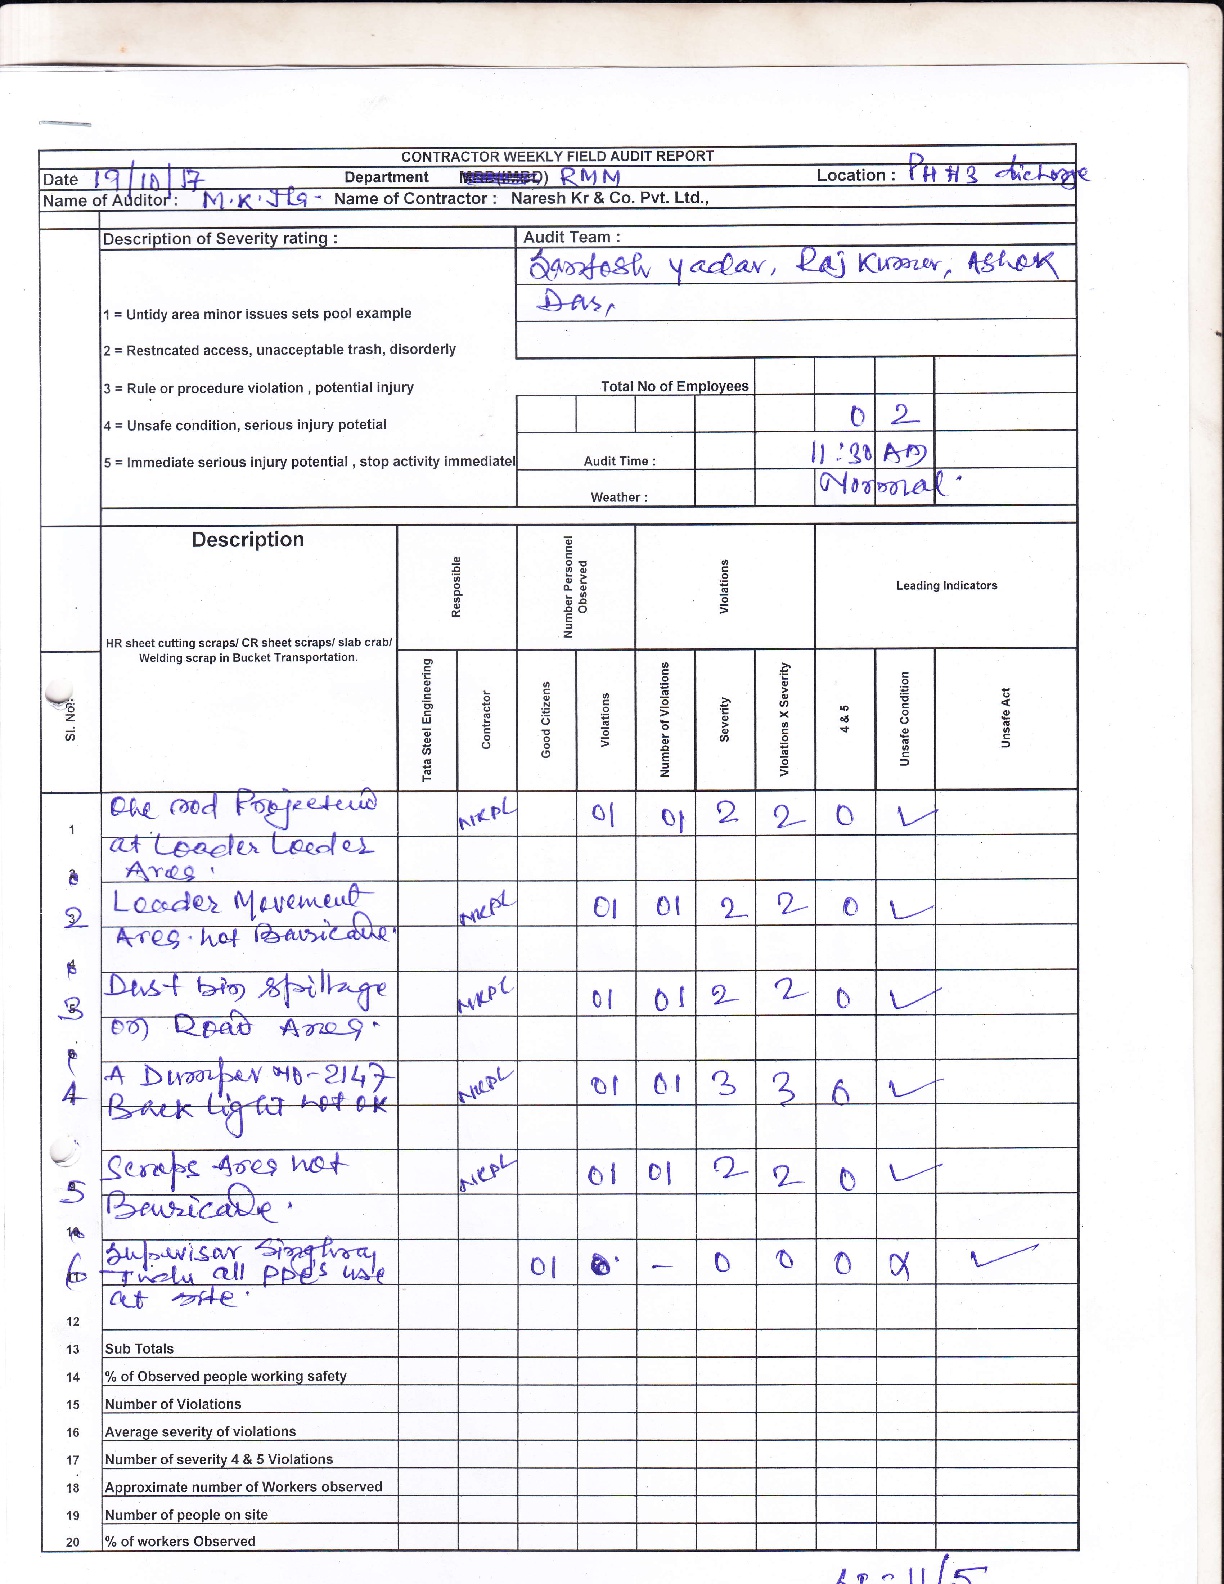 CONTRACTOR WEEKLY FIELD AUDIT REPORT
Date 19/10/17 Department RMM Location : PH#3
Name of Auditor : M.K. Name of Contractor : Naresh Kr & Co. Pvt. Ltd.,
Description of Severity rating : Audit Team :
Santosh Yadav, Raj Kumar, Ashok
Das,
1 = Untidy area minor issues sets pool example
2 = Restncated access, unacceptable trash, disorderly
3 = Rule or procedure violation , potential injury Total No of Employees
4 = Unsafe condition, serious injury potetial 0 2
5 = Immediate serious injury potential , stop activity immediatel Audit Time : 11:30
Weather : Normal.
Description Resposible Number Personnel Observed VIolations Leading Indicators
HR sheet cutting scraps/ CR sheet scraps/ slab crab/
Welding scrap in Bucket Transportation.
Sl. No. Tata Steel Engineering Contractor Good Citizens Violations Number of Violations Severity Violations X Severity 4 & 5 Unsafe Condition Unsafe Act
1 One rod NKPL 01 01 2 2 0 ✓
at Loader
Area.
2 Loader Movement NKPL 01 01 2 2 0 ✓
Area not Barricade.
3 Dust bin spillage NKPL 01 01 2 2 0 ✓
on Road Area.
4 A Dumper no-2147 NKPL 01 01 3 3 0 ✓
Back light not ok
5 Scraps Area not NKPL 01 01 2 2 0 ✓
Barricade.
6 Supervisar 01 0 - 0 0 0 ✓
all PPE's use
at site.
12
13 Sub Totals
14 % of Observed people working safety
15 Number of Violations
16 Average severity of violations
17 Number of severity 4 & 5 Violations
18 Approximate number of Workers observed
19 Number of people on site
20 % of workers Observed